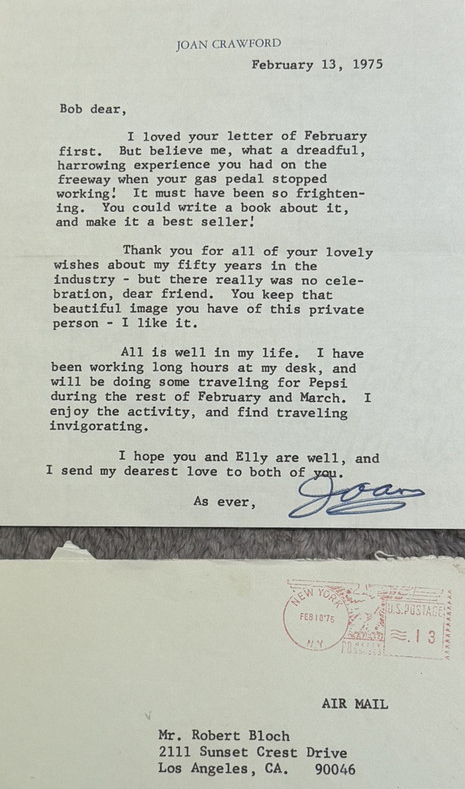 JOAN CRAWFORD
February 13, 1975
Bob dear,
I loved your letter of February
first. But believe me, what a dreadful,
harrowing experience you had on the
freeway when your gas pedal stopped
working! It must have been so frighten-
ing. You could write a book about it,
and make it a best seller!
Thank you for all of your lovely
wishes about my fifty years in the
industry - but there really was no cele-
bration, dear friend. You keep that
beautiful image you have of this private
person - I like it.
All is well in my life. I have
been working long hours at my desk, and
will be doing some traveling for Pepsi
during the rest of February and March. I
enjoy the activity, and find traveling
invigorating.
I hope you and Elly are well, and
I send my dearest love to both of you.
As ever,
Joan
NEW YORK
N.Y.
U.S. POSTAGE
.13
AIR MAIL
Mr. Robert Bloch
2111 Sunset Crest Drive
Los Angeles, CA. 90046